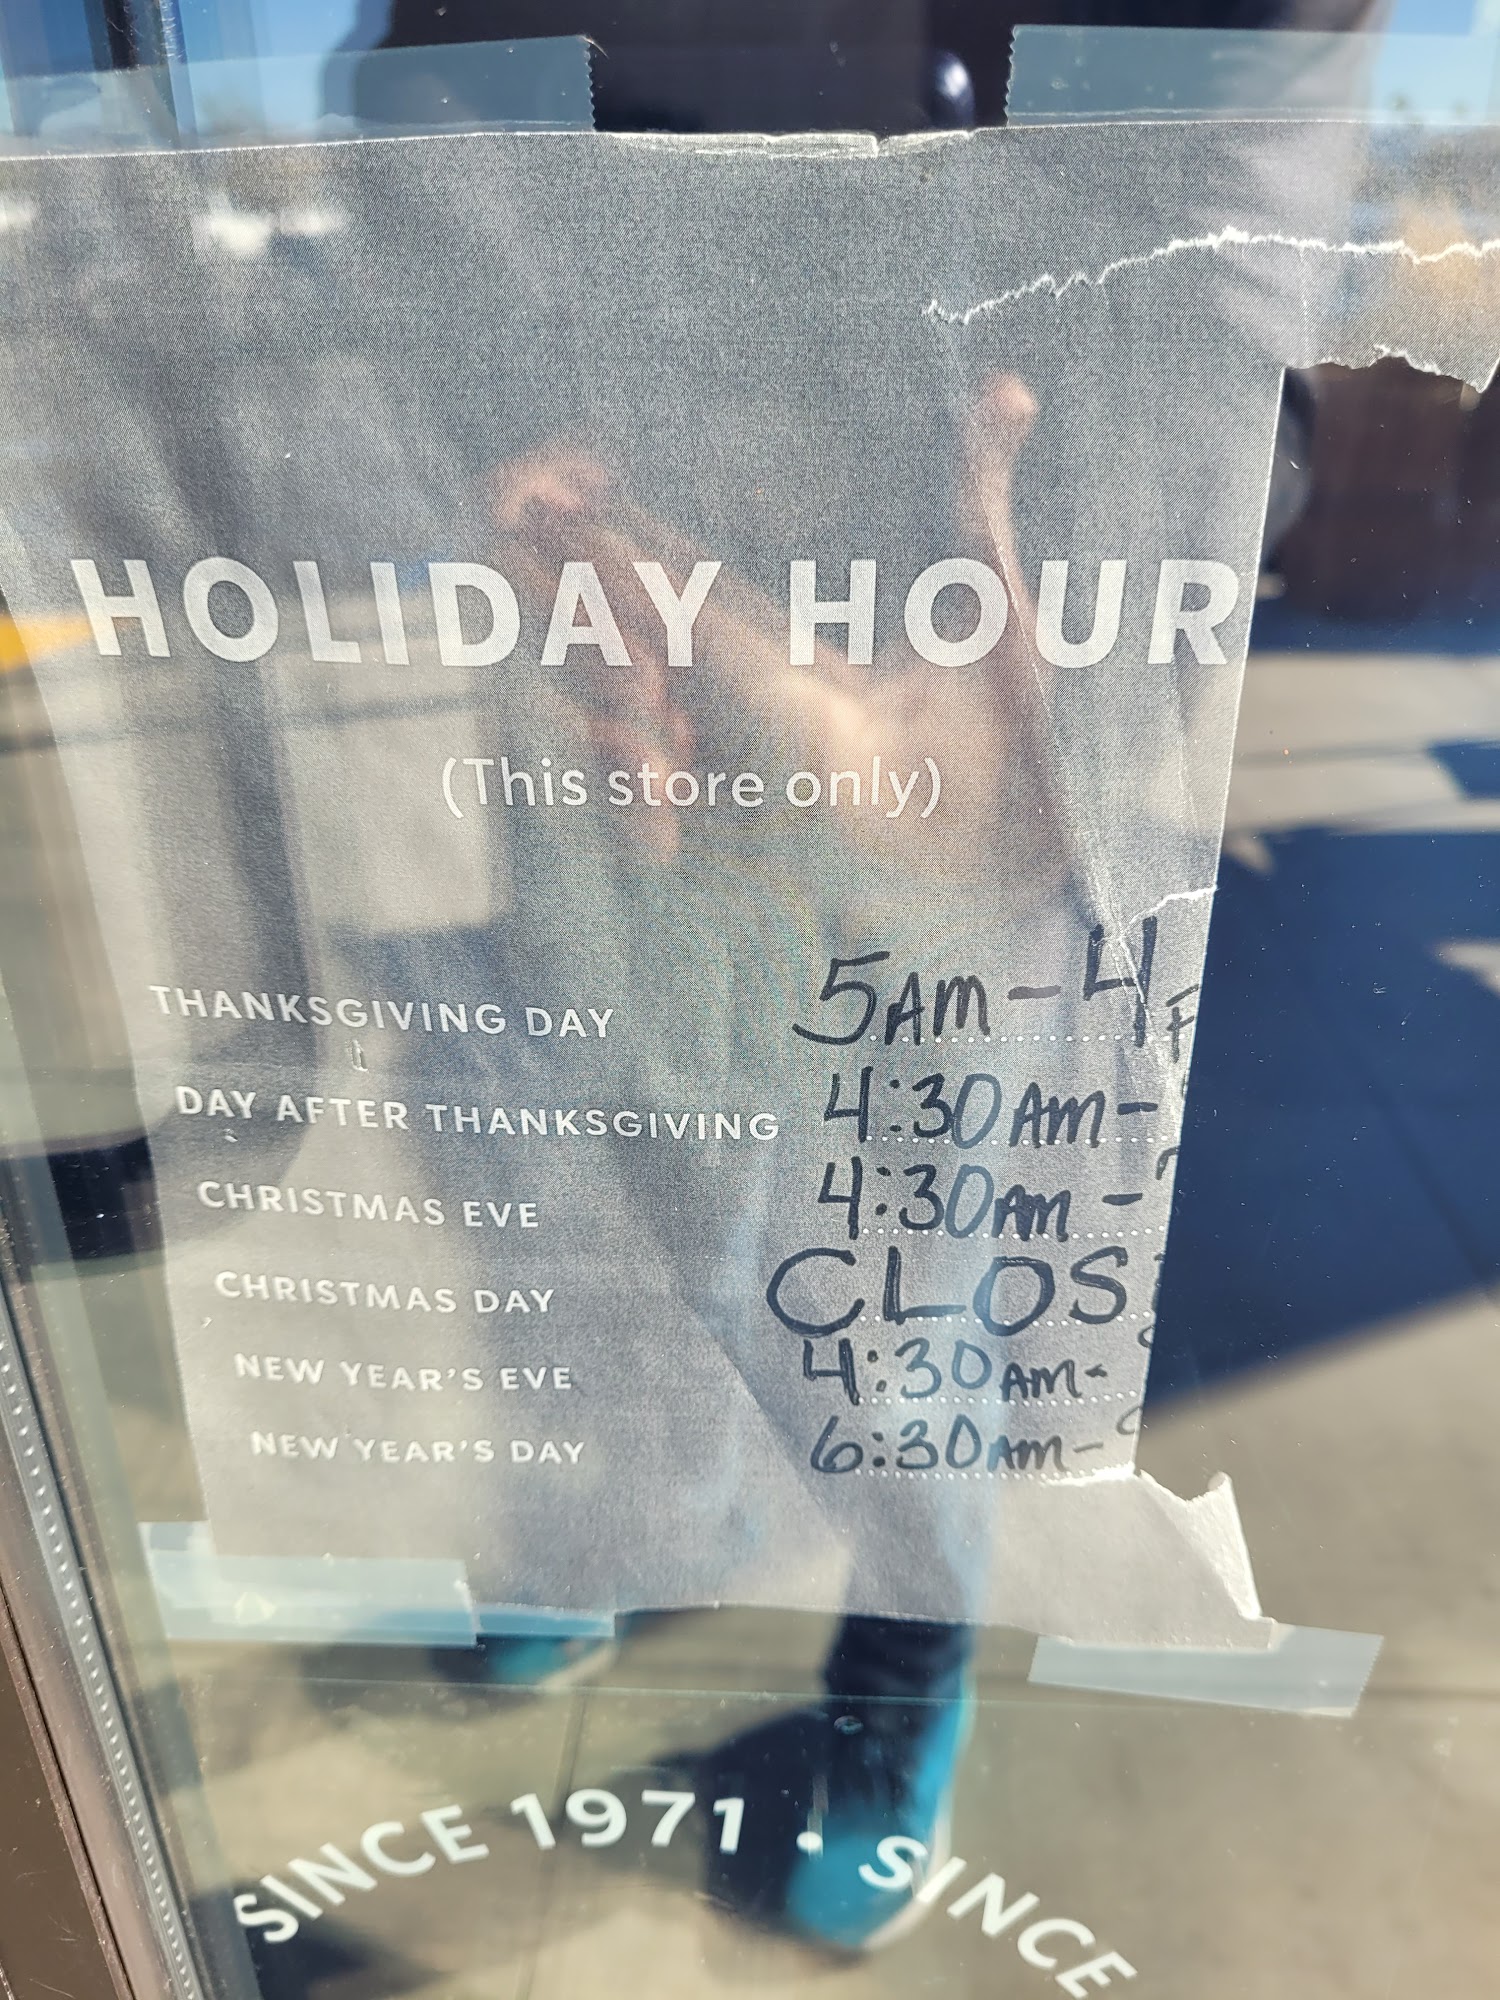 HOLIDAY HOUR
(This store only)
THANKSGIVING DAY 5AM - 4
DAY AFTER THANKSGIVING 4:30AM -
CHRISTMAS EVE 4:30AM -
CHRISTMAS DAY CLOS
NEW YEAR'S EVE 4:30AM -
NEW YEAR'S DAY 6:30AM -
SINCE 1971 • SINCE